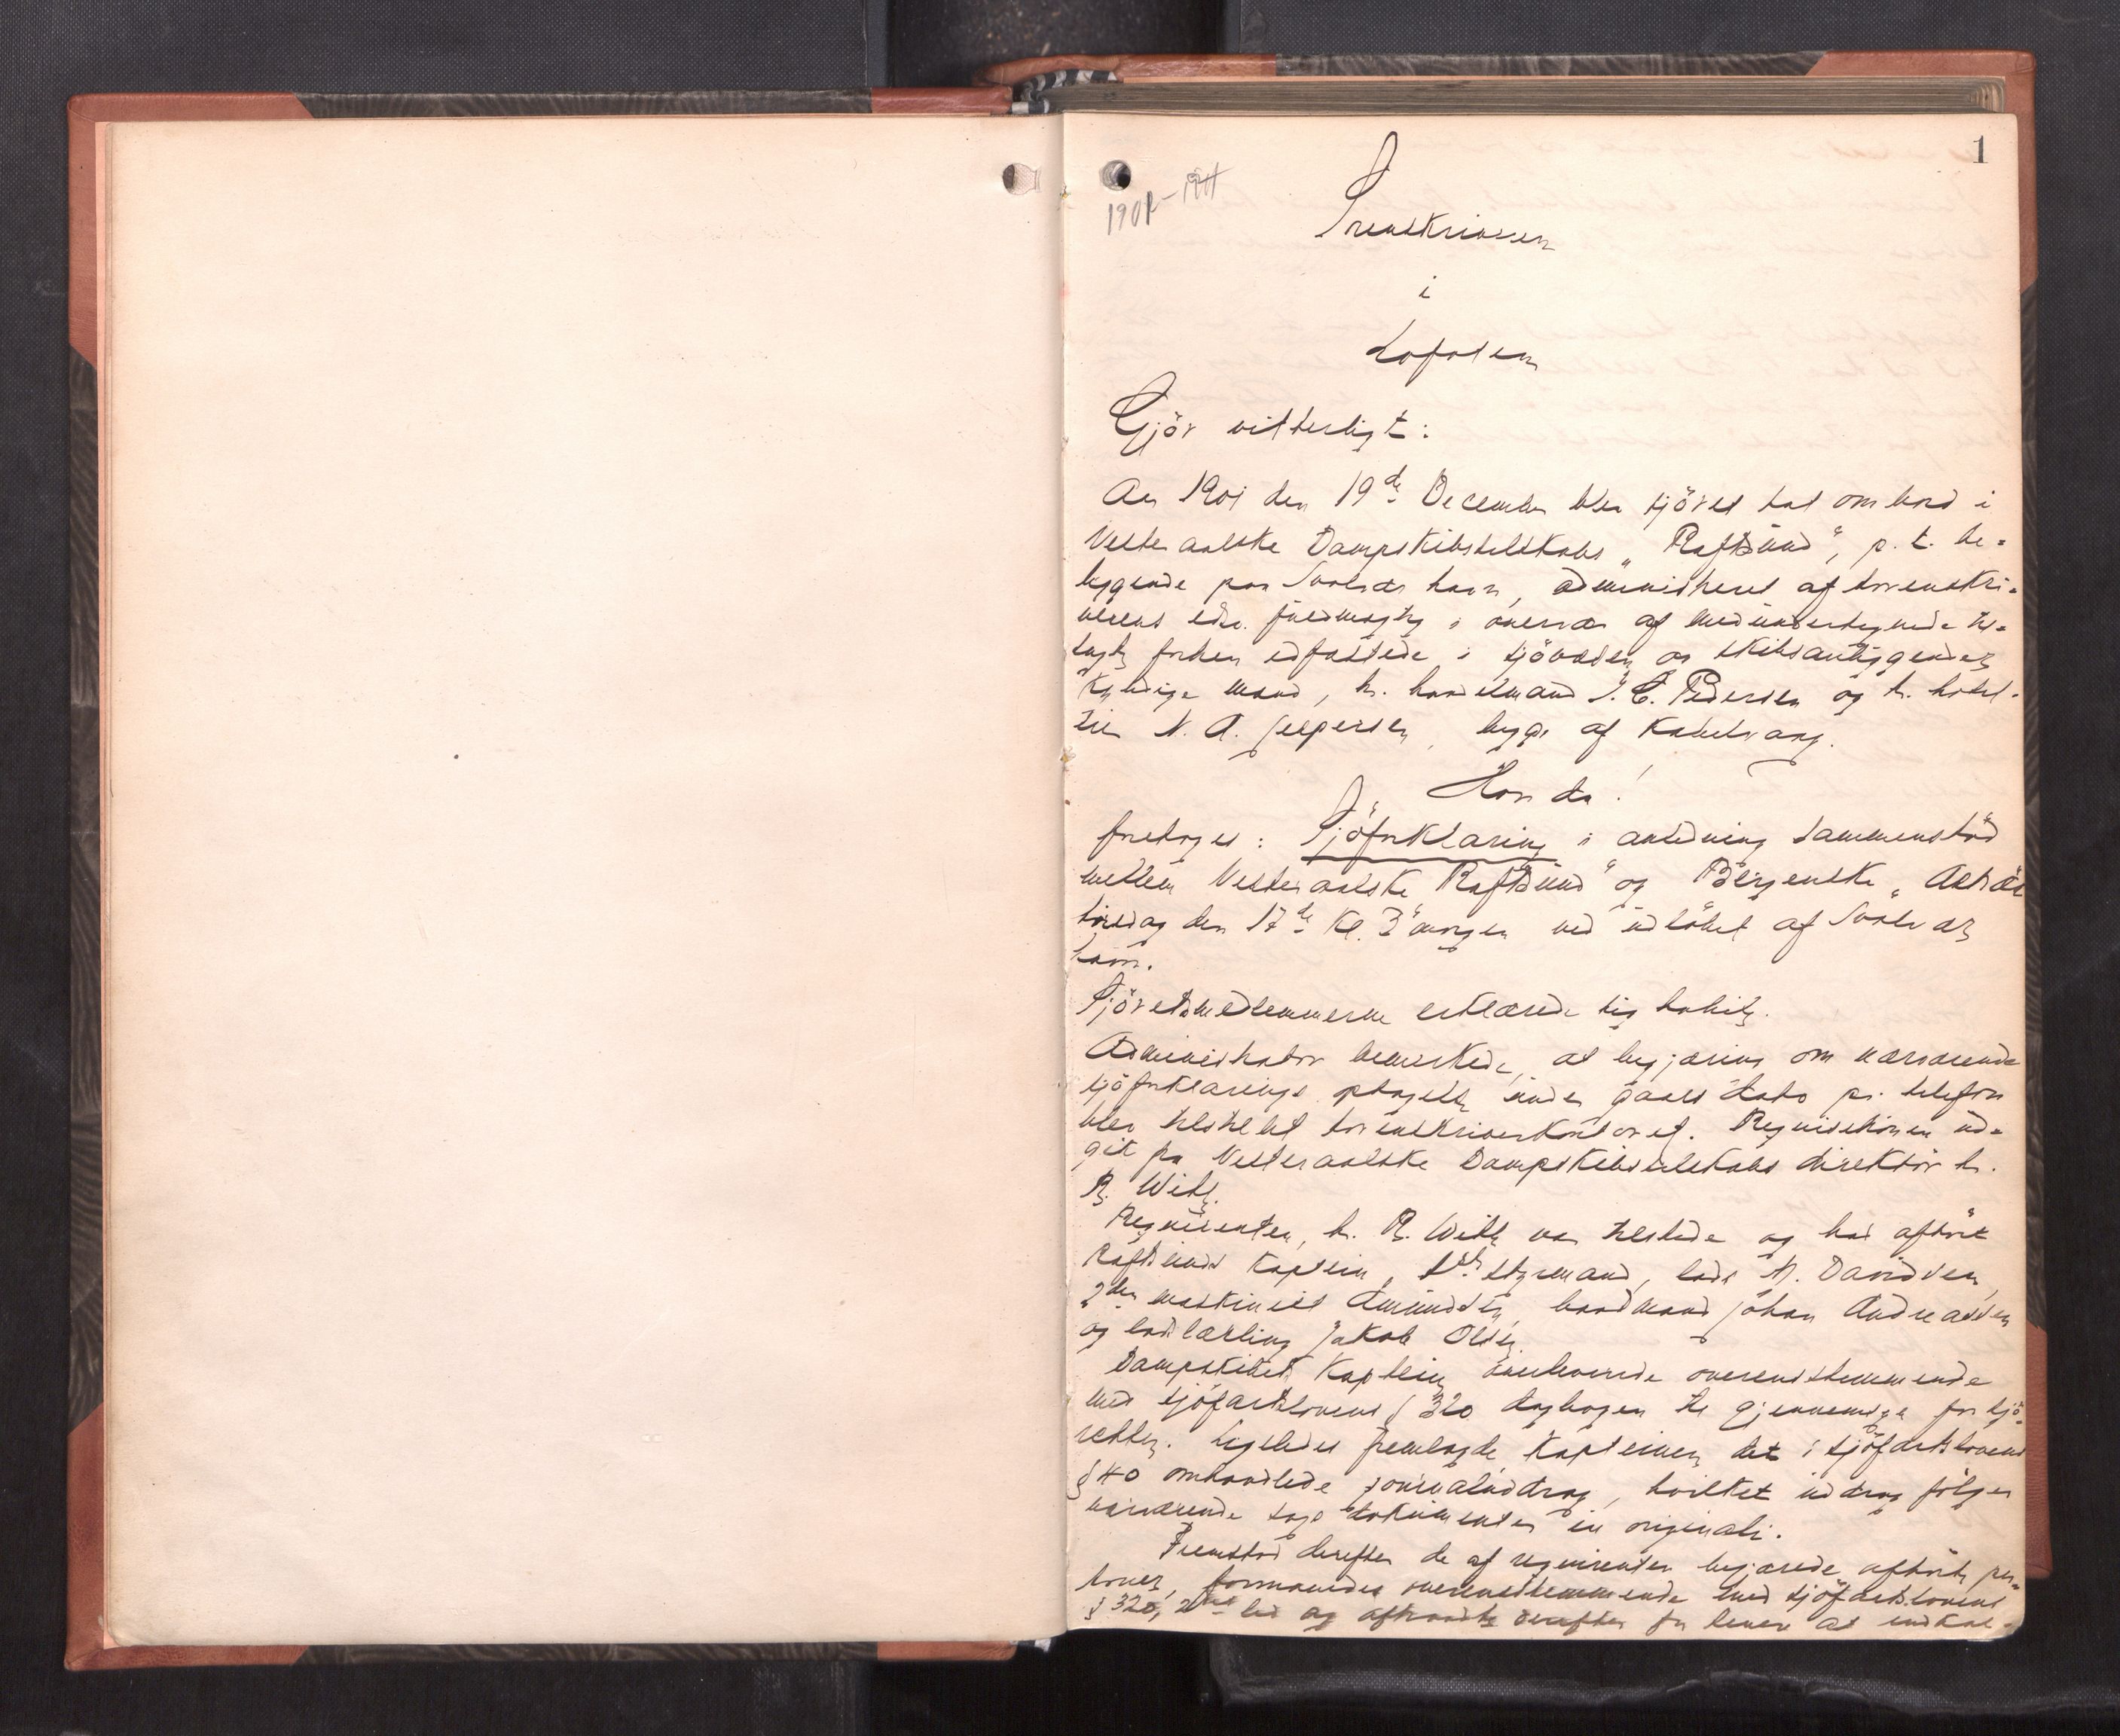 1
1901-1911
Sorenskriveren
i
Lofoten
Gjör vitterligt:
Aar 1901 den 19de December blev sjöret sat ombord i
Vesteraalske Dampskibsselskabs "Raftsund", p. t. be-
liggende paa Svolvær havn, administreret af sorenskri-
verens edsv. fuldmægtig i overvær af medundertegnede til-
kaldte forhen edfæstede i sjövæsen og skibsanliggender
kyndige mænd, hr. handelsmand J. E. Pedersen og hr. hotel-
eier N. A. Jespersen, begge af Kabelvaag.
Hvor da!
foretoges: Sjöforklaring i anledning sammenstöd
mellem Vesteraalske "Raftsund" og Bergenske "Astræa"
tirsdag den 17de kl. 3 morgen ved udlöbet af Svolvær
havn.
Sjöretsmedlemmerne erklærede sig habile.
Administrator bemerkede, at begjæring om nærværende
sjöforklarings optagelse under gaars dato pr. telefon
blev tilstillet sorenskriverkontoret. Requisitionen ud-
gik fra Vesteraalske Dampskibsselskabs direktör hr.
R. With.
Requirenten, hr. R. With var tilstede og bad afhört
Raftsunds kaptein, 1ste styrmand, lods N. Davidsen,
2den maskinist Amundsen, baadsmand Johan Andreassen
og lodslærling Jakob Olsen.
Dampskibets kaptein overleverede overensstemmende
med sjöfartslovens § 320 dagbogen til gjennemsyn for sjö-
retten. Ligeledes fremlagde kapteinen det i sjöfartslovens
§ 40 omhandlede journaluddrag, hvilket uddrag fölger
nærværende sags dokumenter in originali.
Fremstod derefter de af requirenten begjærede afhörte per-
soner, formanedes overensstemmende med sjöfartslovens
§ 320, 2det led og afhandledes derefter for lenere at indkal-